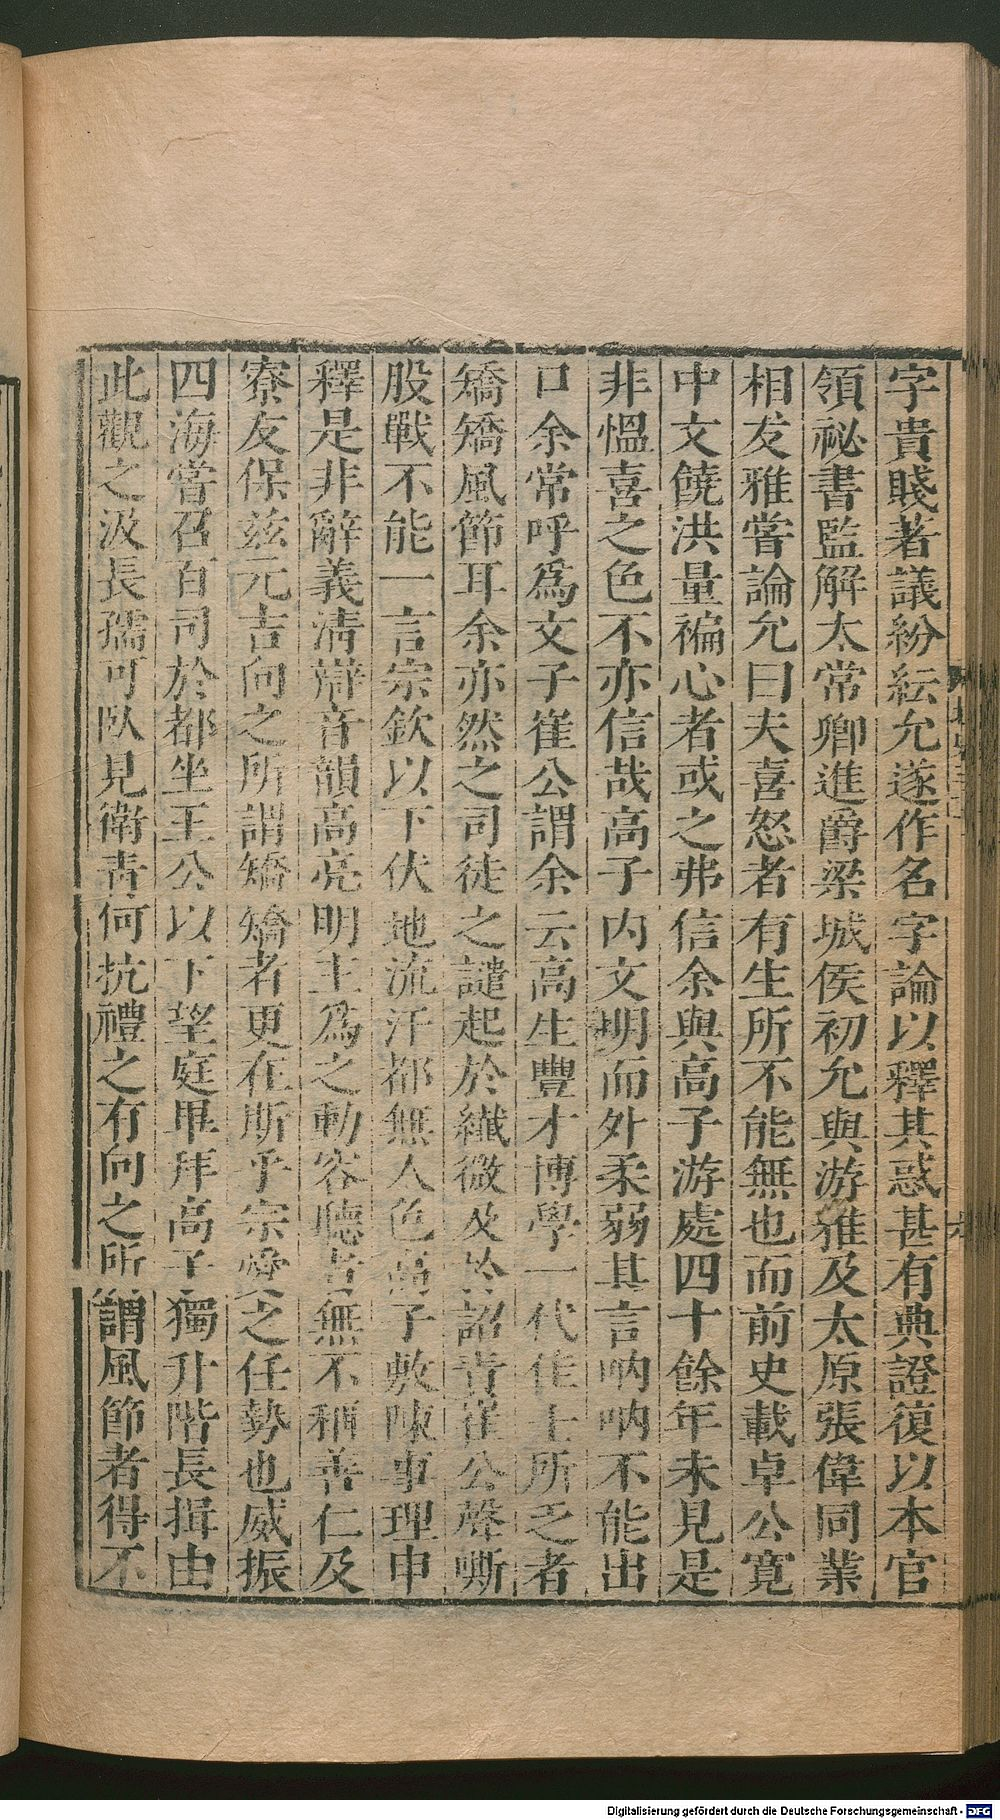 字貴賤著議紛紜允遂作名字論以釋其惑甚有典證復以本官
領祕書監解太常卿進爵梁城侯初允與游雅及太原張偉同業
相友雅嘗論允曰夫喜怒者有生所不能無也而前史載卓公寬
中文饒洪量褊心者或之弗信余與高子游處四十餘年未見是
非慍喜之色不亦信哉高子内文明而外柔弱其言吶吶不能出
口余常呼爲文子崔公謂余云高生豐才博學一代佳士所乏者
矯矯風節耳余亦然之司徒之譴起於纖微及於詔責崔公聲嘶
股戰不能一言宗欽以下伏地流汗都無人色高子敷陳事理申
釋是非辭義淸辯音韻高亮明主爲之動容聽者無不稱善仁及
寮友保兹元吉向之所謂矯矯者更在斯乎宗愛之任勢也威振
四海嘗召百司於都坐王公以下望庭畢拜高子獨升階長揖由
此觀之汲長孺可臥見衛青何抗禮之有向之所謂風節者得不
Digitalisierung gefördert durch die Deutsche Forschungsgemeinschaft - DFG